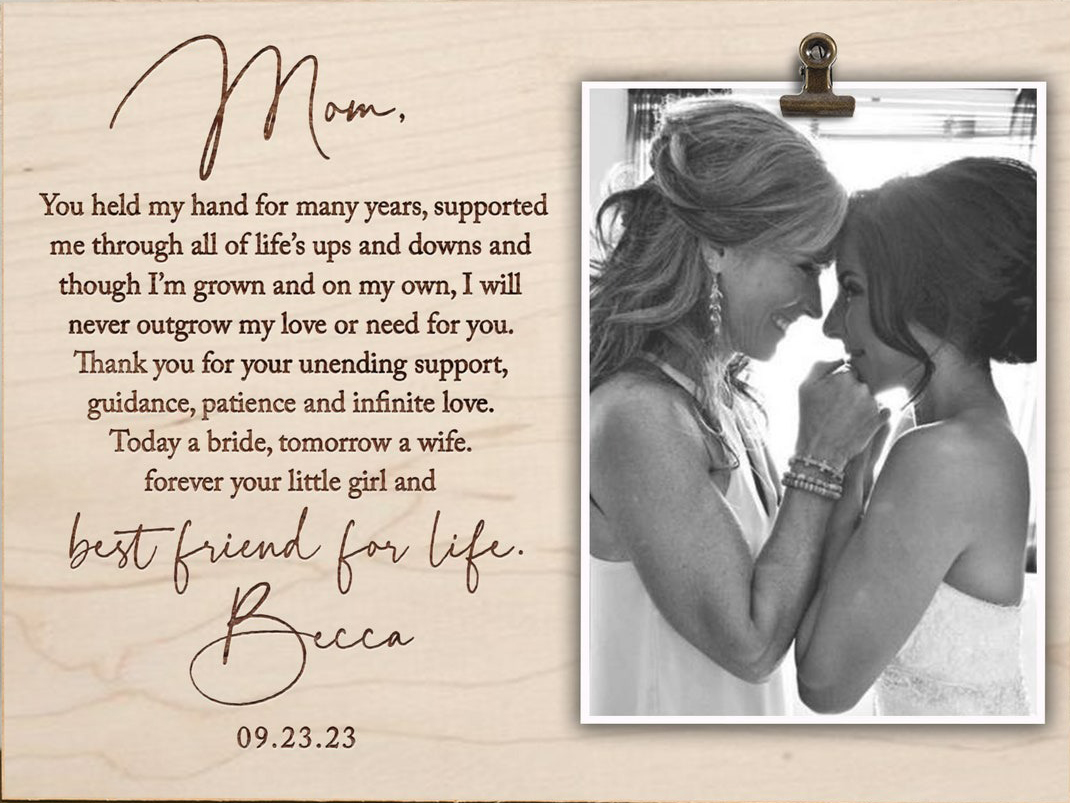 Mom,
You held my hand for many years, supported
me through all of life's ups and downs and
though I'm grown and on my own, I will
never outgrow my love or need for you.
Thank you for your unending support,
guidance, patience and infinite love.
Today a bride, tomorrow a wife.
forever your little girl and
best friend for life.
Becca
09.23.23